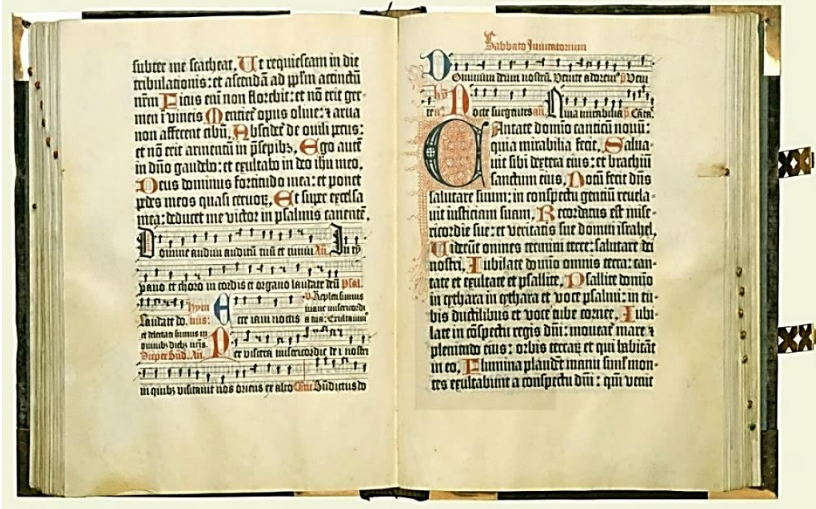 subter me scateat. Ut requiescam in die
tribulationis: et ascendā ad ppłm accinctū
nr̄m Ficus eni non florebit: et nō erit ger-
men ī vineis Mentiet opus oliue: ⁊ arua
non afferent cibū. Abscidet de ouili pecus:
et nō erit armentū in p̄sepibꝫ. Ego autē
in dn̄o gaudebo: et exultabo in deo ihu meo.
Deus dominus fortitudo mea: et ponet
pedes meos quasi ceruoꝝ. Et super excelsa
mea: deducet me victor in psalmis canentē.
Domine audiui auditū tuū et timui Añ. In ty
pano et choro in cordis et organo laudate deū psal.
Laudate do.
hym
Ecce iam noctis
Repleti sumus
mane misericordi
a tua: Exultauimꝰ
et delectati sumus in
Super Bn̄d. Añ.
Per viscera misericordie dei nostri
in quibꝫ visitauit nos oriens ex alto Cāt. Bn̄dictus do
Sabbato Inuitatorium
Dominum deum nostrū. Venite adorem⁹ p̄ Veni
te: hy Nocte surgentes añ Quia mirabilia p̄ Cāta.
CAntate domīo canticū nouū:
quia mirabilia fecit. Salua-
uit sibi dextera eius: et brachiū
sanctum eius. Notū fecit dn̄s
salutare suum: in conspectu gentiū reuela-
uit iusticiam suam. Recordatus est mise-
ricordie sue: et veritatis sue domui israhel.
Uiderūt omnes termini terre: salutare dei
nostri. Iubilate domīo omnis terra: can-
tate et exultate et psallite. Psallite domīo
in cythara in cythara et voce psalmi: in tu-
bis ductilibus et voce tube cornee. Iubi-
late in cōspectu regis dn̄i: moueat̄ mare ⁊
plenitudo eius: orbis terraꝝ et qui habitāt
in eo. Flumina plaudēt manu simł mon-
tes exultabunt a conspectu dn̄i: qm̄ venit